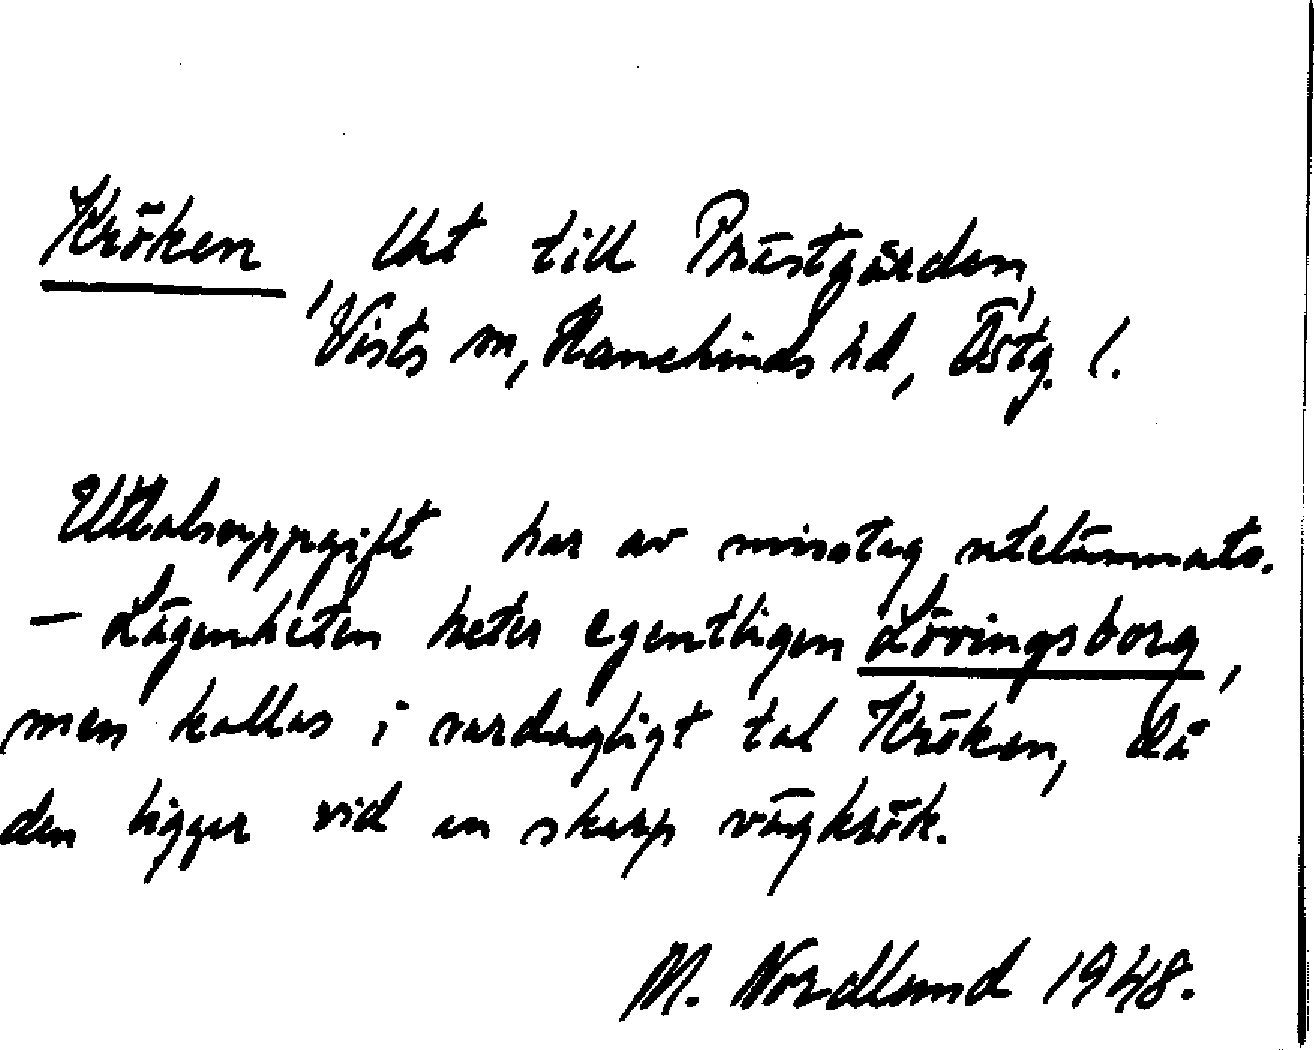 Kröken, lht till Prästgården,
Vists sn, Hanekinds hd, Östg. l.
Uttalsuppgift har av misstag utelämnats.
— Lägenheten heter egentligen Lövingsborg,
men kallas i vardagligt tal Kröken, då
den ligger vid en skarp vägkrök.
M. Nordlund 1948.